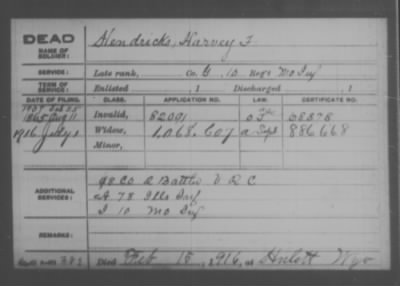 DEAD
NAME OF SOLDIER: Hendricks, Harvey F.
SERVICE: Late rank, Co. G, 10 Reg't Mo Inf
TERM OF SERVICE: Enlisted , 1 Discharged , 1
DATE OF FILING. CLASS. APPLICATION NO. LAW. CERTIFICATE NO.
1865 Aug 11 Invalid, 82091
1916 Widow, 1,068,607 a Sept 886668
Minor,
ADDITIONAL SERVICES: 98 Co 2 Battln V R C
A 78 Ills Inf
I 10 Mo Inf
REMARKS:
Died Feb 15, 1916, at Hulett Wyo